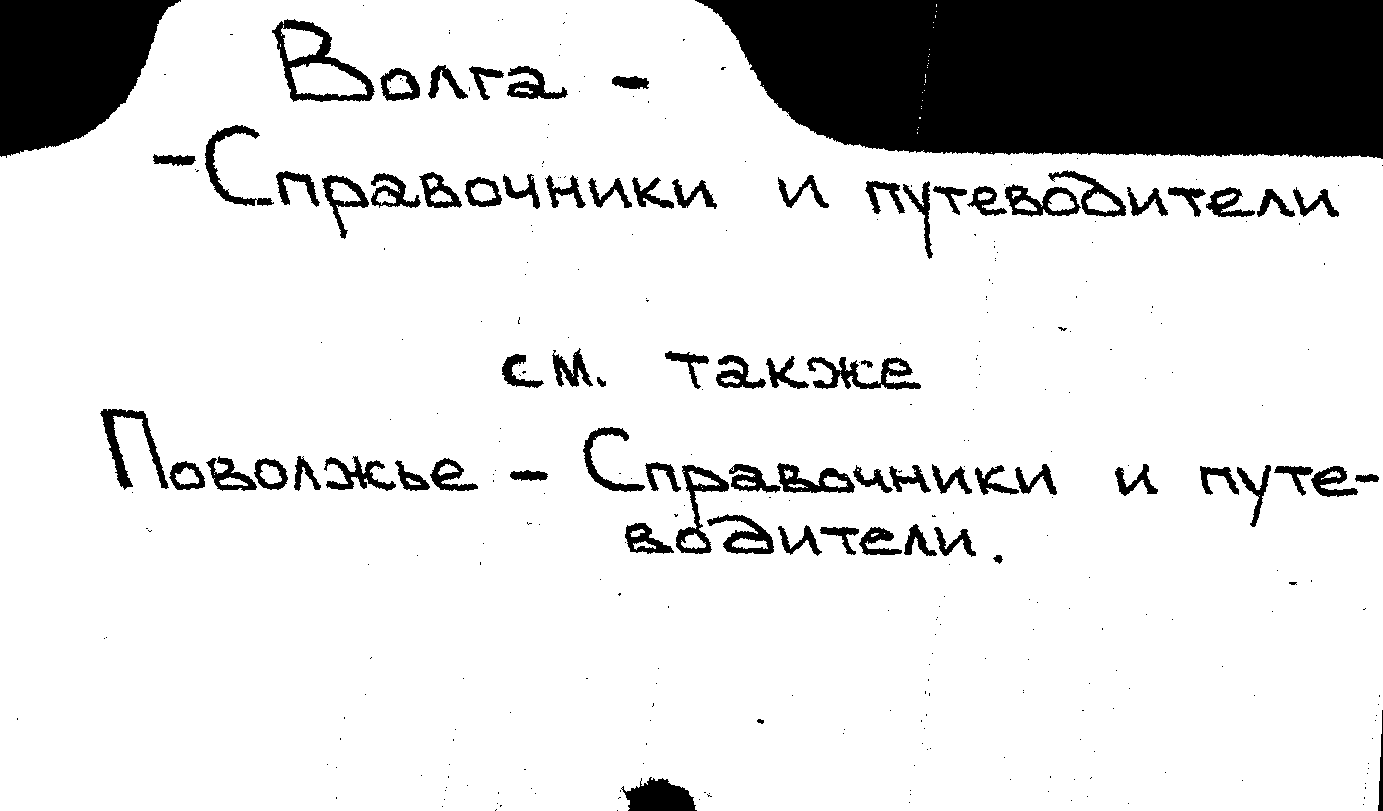 Волга -
-Справочники и путеводители
см. также
Поволжье - Справочники и путе-
водители.